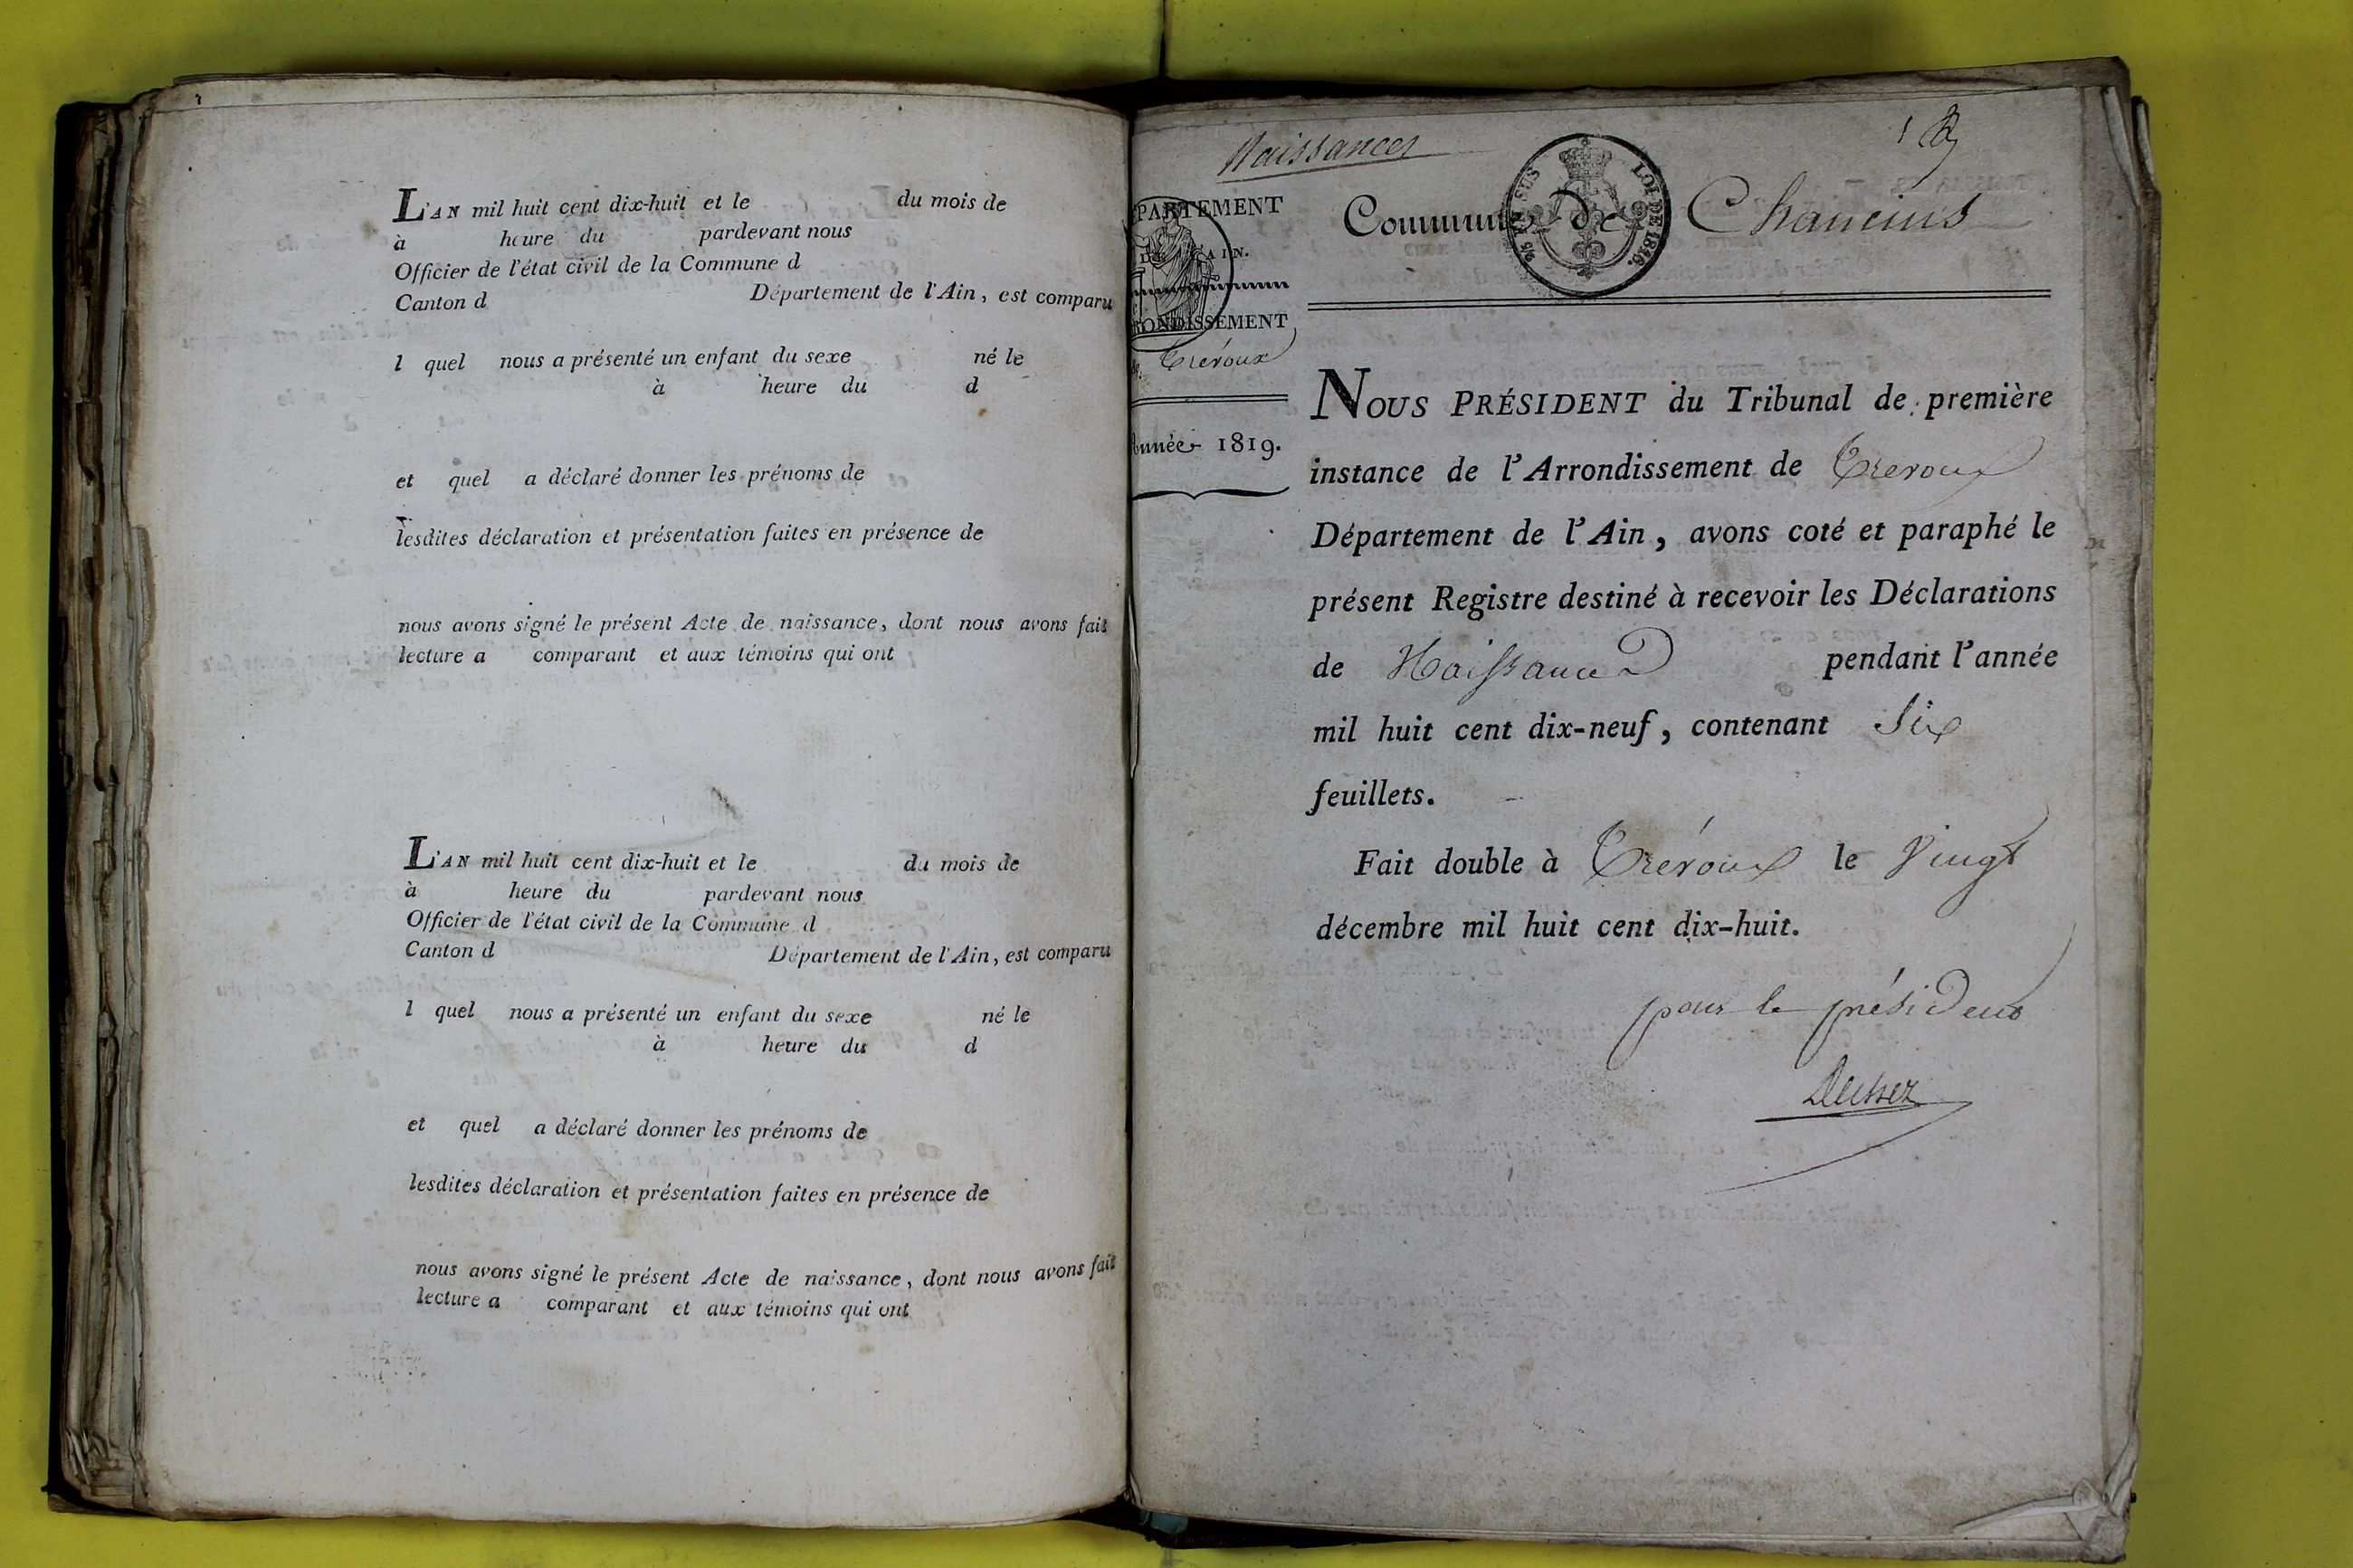 L'AN mil huit cent dix-huit et le du mois de
à heure du pardevant nous
Officier de l'état civil de la Commune d
Canton d Département de l'Ain, est comparu
l quel nous a présenté un enfant du sexe né le
à heure du d
et quel a déclaré donner les prénoms de
lesdites déclaration et présentation faites en présence de
nous avons signé le présent Acte de naissance, dont nous avons fait
lecture a comparant et aux témoins qui ont
L'AN mil huit cent dix-huit et le du mois de
à heure du pardevant nous
Officier de l'état civil de la Commune d
Canton d Département de l'Ain, est comparu
l quel nous a présenté un enfant du sexe né le
à heure du d
et quel a déclaré donner les prénoms de
lesdites déclaration et présentation faites en présence de
nous avons signé le présent Acte de naissance, dont nous avons fait
lecture a comparant et aux témoins qui ont
Naissances
1
PARTEMENT
AIN.
RONDISSEMENT
Trévoux
Année 1819.
Commune de Chaneins
EN SUS
LOI DE 1816.
NOUS PRÉSIDENT du Tribunal de première
instance de l'Arrondissement de Trevoux
Département de l'Ain, avons coté et paraphé le
présent Registre destiné à recevoir les Déclarations
de Naissance pendant l'année
mil huit cent dix-neuf, contenant Six
feuillets.
Fait double à Trévoux le Vingt
décembre mil huit cent dix-huit.
pour le président